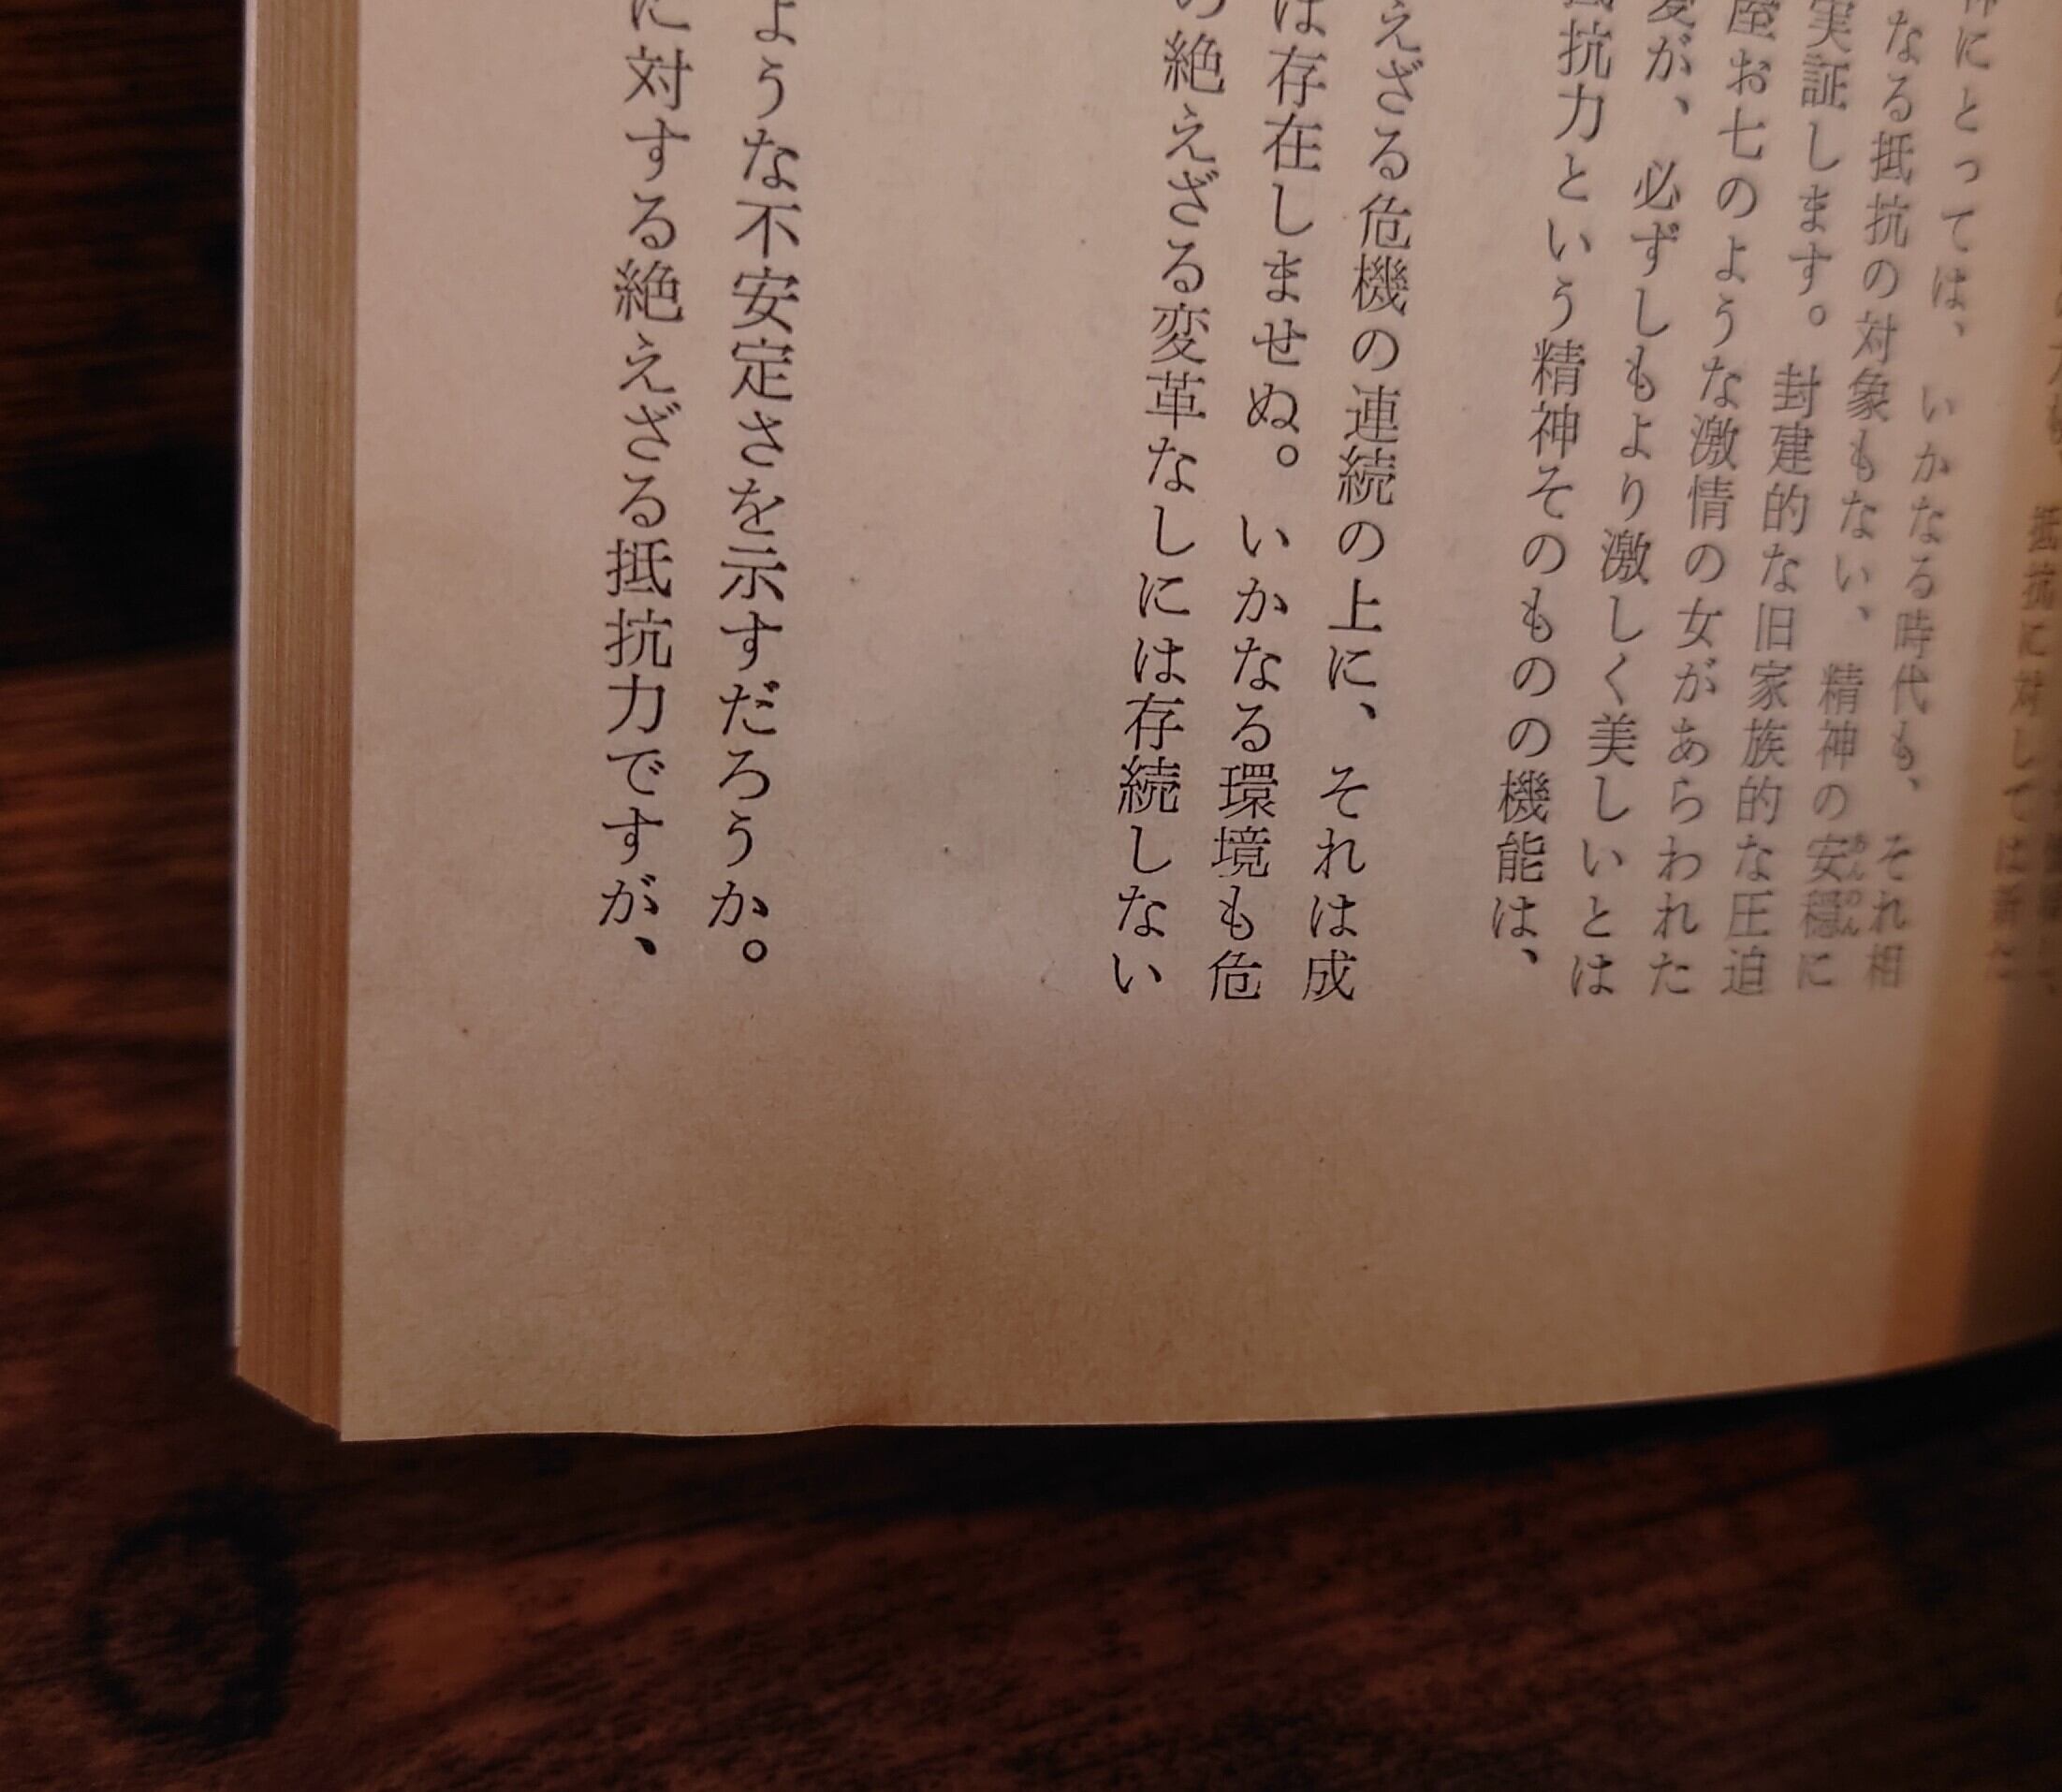 抵抗に対しては新に
にとっては、いかなる時代も、それ相
なる抵抗の対象もない、精神の安穏に
実証します。封建的な旧家族的な圧迫
屋お七のような激情の女があらわれた
変が、必ずしもより激しく美しいとは
抗力という精神そのものの機能は、
えざる危機の連続の上に、それは成
は存在しませぬ。いかなる環境も危
の絶えざる変革なしには存続しない
ような不安定さを示すだろうか。
に対する絶えざる抵抗力ですが、